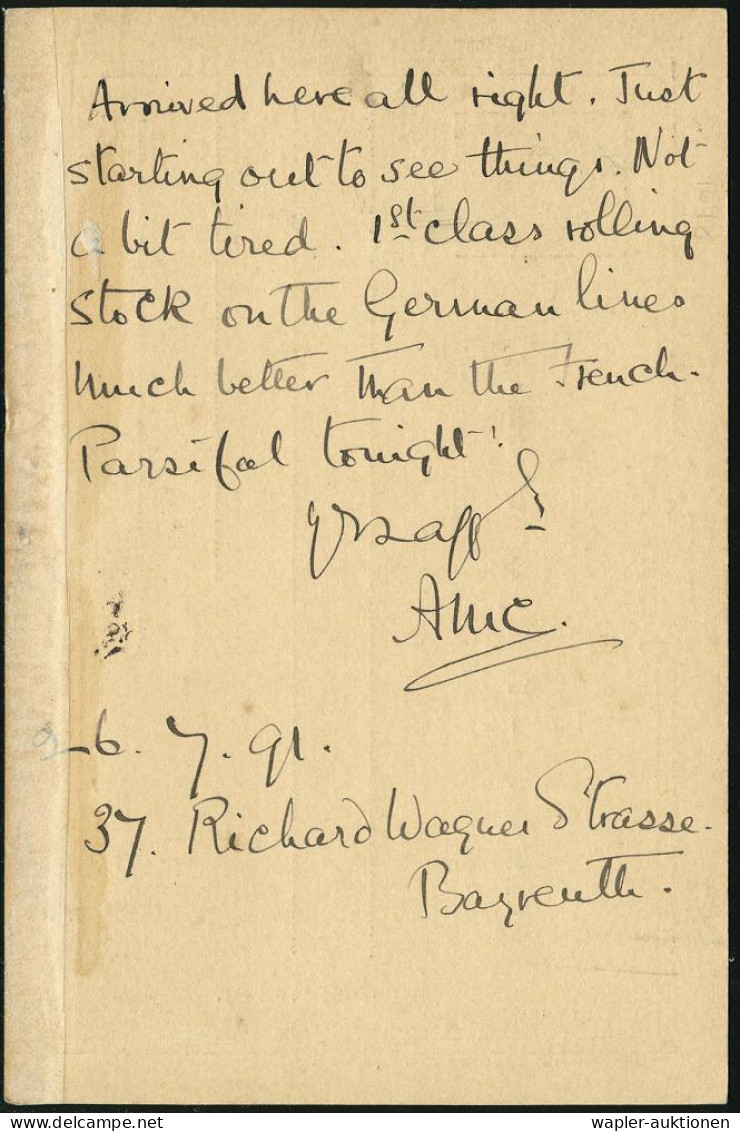 Arrived here all right. Just
starting out to see things. Not
a bit tired. 1st class rolling
stock on the German lines
much better than the French.
Parsifal tonight!
Yrs affly
AMC.
26. 7. 91.
37. Richard Wagner Strasse.
Bayreuth.
wapler-auktionen